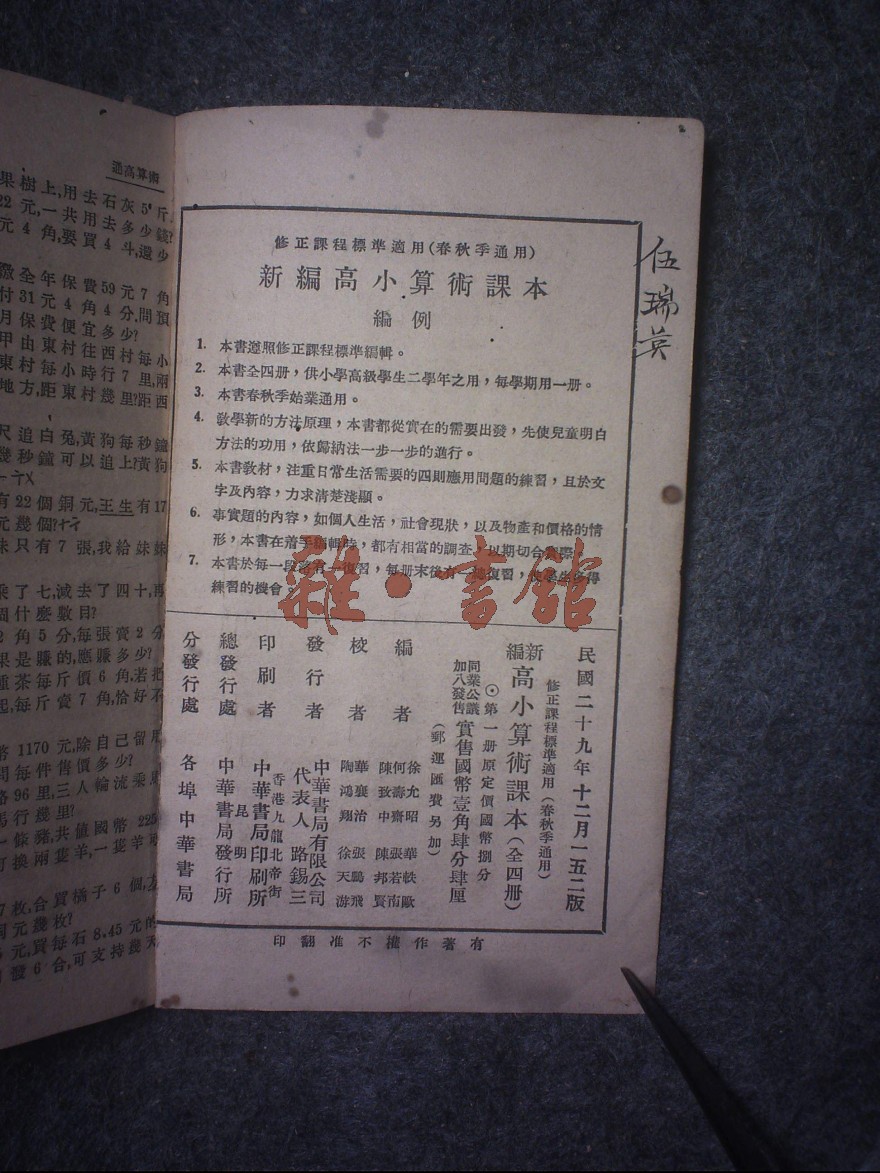 修正課程標準適用(春秋季通用)
新編高小算術課本
編例
1. 本書遵照修正課程標準編輯。
2. 本書全四册，供小學高級學生二學年之用，每學期用一册。
3. 本書春秋季始業通用。
4. 教學新的方法原理，本書都從實在的需要出發，先使兒童明白
方法的功用，依歸納法一步一步的進行。
5. 本書教材，注重日常生活需要的四則應用問題的練習，且於文
字及內容，力求清楚淺顯。
6. 事實題的內容，如個人生活，社會現狀，以及物產和價格的情
形，本書在着手編輯時，都有相當的調查，以期切合實際。
7. 本書於每一段落有一復習，每册末後有一總復習，使學生多得
練習的機會。
民國二十九年十二月一五二版
修正課程標準適用(春秋季通用)
新編高小算術課本(全四册)
⊙第一册原定價國幣捌分
同業公議加八發售實售國幣壹角肆分肆厘
(郵運匯費另加)
編者
徐允昭 華軼歐
何壽齋 張若南
陳致中 陳邦賢
校者
華襄治 張鵬飛
陶鴻翔 徐天游
發行者
中華書局有限公司
代表人 路錫三
印刷者
香港九龍北帝街
昆明
中華書局印刷所
總發行處
中華書局發行所
分發行處
各埠中華書局
有著作權不准翻印
伍瑞英
雜·書館
果樹上,用去石灰5斤
22元,一共用去多少錢?
元4角,要買4斗,還少
繳全年保費59元7角
付31元4角4分,問預
月保費便宜多少?
甲由東村往西村每小
東村每小時行7里,兩
地方,距東村幾里?距西
尺追白兔,黃狗每秒鐘
幾秒鐘可以追上?黃狗
有22個銅元,王生有17
元幾個?
妹只有7張,我給妹妹
乘了七,減去了四十,再
問什麼數目?
2角5分,每張賣2分
果是賺的,應賺多少?
種茶每斤價6角,若把
起,每斤賣7角,恰好不
幣1170元,除自己留用
問每件售價多少?
路96里,三人輪流乘馬
馬行幾里?
一條豬,共值國幣225
可換兩隻羊,一隻羊
7枚,合買橘子6個,
同元幾枚?
元,買每石8.45元的
發6合,可支持幾天